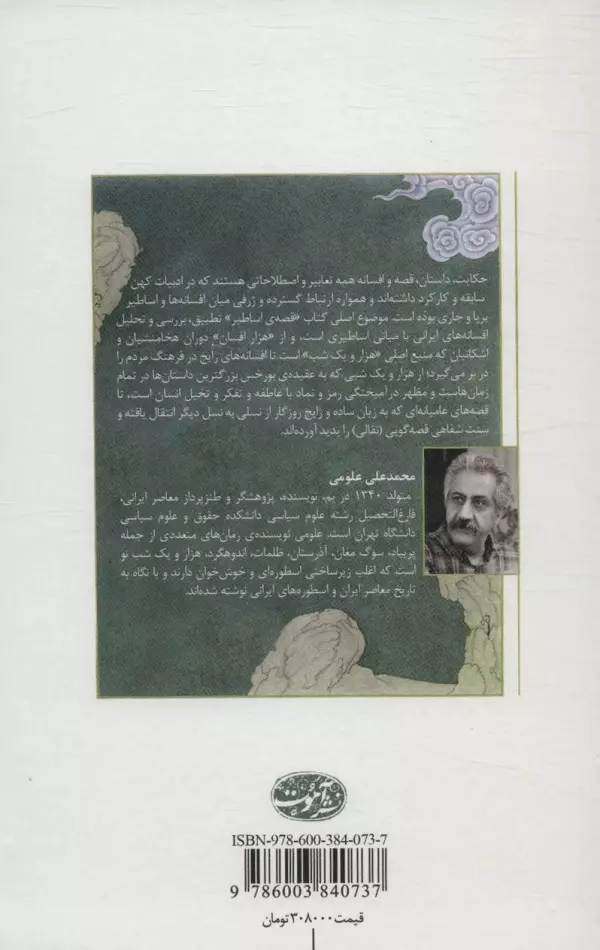 حکایت، داستان، قصه و افسانه همه تعابیر و اصطلاحاتی هستند که در ادبیات کهن
سابقه و کارکرد داشته‌اند و همواره ارتباط گسترده و ژرفی میان افسانه‌ها و اساطیر
برپا و جاری بوده است. موضوع اصلی کتاب "قصه‌ی اساطیر" تطبیق، بررسی و تحلیل
افسانه‌های ایرانی با مبانی اساطیری است، و از "هزار افسان" دوران هخامنشیان و
اشکانیان که منبع اصلی "هزار و یک شب" است تا افسانه‌های رایج در فرهنگ مردم را
در بر می‌گیرد؛ از هزار و یک شبی که به عقیده‌ی بورخس بزرگترین داستان‌ها در تمام
زمان‌هاست و مظهر در آمیختگی رمز و نماد با عاطفه و تفکر و تخیل انسان است، تا
قصه‌های عامیانه‌ای که به زبان ساده و رایج روزگار از نسلی به نسل دیگر انتقال یافته و
سنت شفاهی قصه‌گویی (نقالی) را پدید آورده‌اند.
محمدعلی علومی
متولد ۱۳۴۰ در بم، نویسنده، پژوهشگر و طنزپرداز معاصر ایرانی،
فارغ‌التحصیل رشته علوم سیاسی دانشکده حقوق و علوم سیاسی
دانشگاه تهران است. علومی نویسنده‌ی رمان‌های متعددی از جمله
پریباد، سوگ مغان، آذرستان، ظلمات، اندوهگرد، هزار و یک شب نو
است که اغلب زیرساختی اسطوره‌ای و خوش‌خوان دارند و با نگاه به
تاریخ معاصر ایران و اسطوره‌های ایرانی نوشته شده‌اند.
نشر آموت
ISBN-978-600-384-073-7
9 786003 840737
قیمت ۳۰۸۰۰۰ تومان